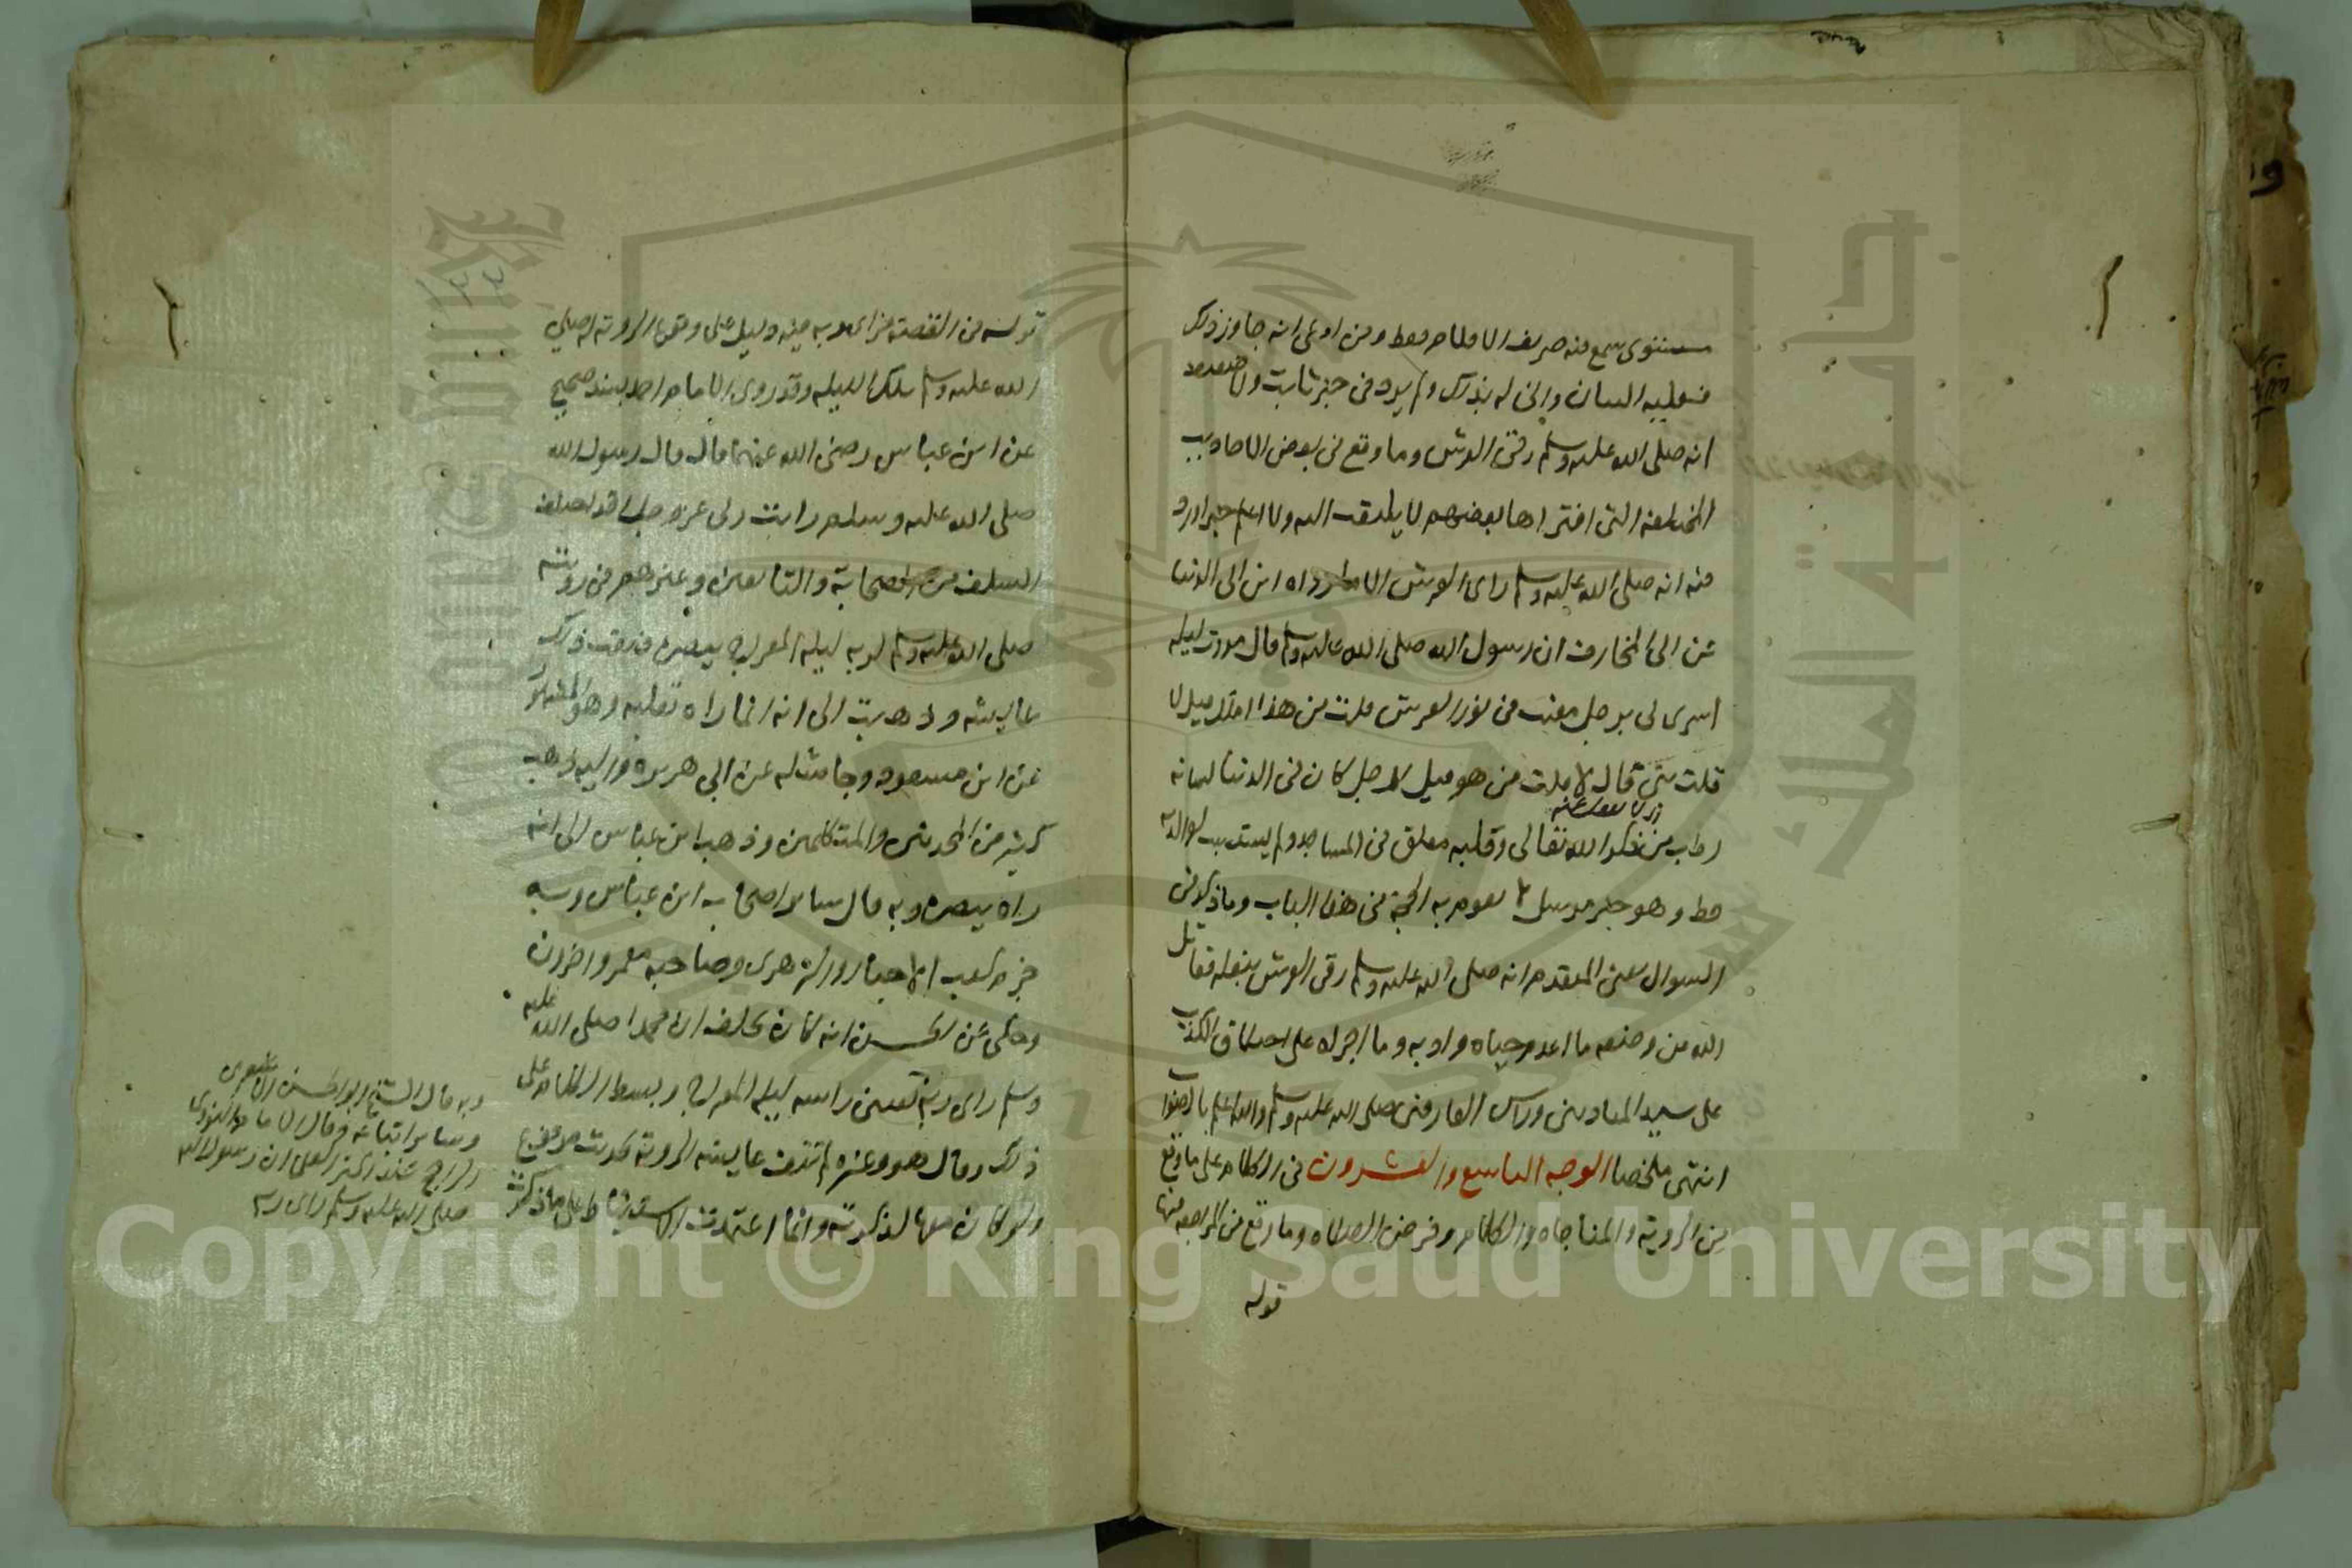 مستوى سمع فيه صريف الاقلام فقط ومن ادعى انه جاوز ذلك
فعليه البيان واني له بذلك ولم يرد في خبر ثابت ولا ضعيف
انه صلى الله عليه وسلم رقى العرش وما وقع في بعض الاحاديث
التي افتراها بعضهم لا يلتفت اليه ولا اعلم خبرا ورد
فيه انه صلى الله عليه وسلم راى العرش الا ما رواه ابن ابي الدنيا
عن ابي المخارق ان رسول الله صلى الله عليه وسلم قال مررت ليلة
اسرى بي برجل مغيب في نور العرش قلت من هذا املك قيل لا
قلت نبي قال لا قلت من هو قيل رجل كان في الدنيا لسانه
رطب من ذكر الله تعالى وقلبه معلق في المساجد ولم يستسب لوالديه
قط وهو خبر مرسل لا تقوم به الحجة في هذا الباب وما ذكر في
السوال المتقدم انه صلى الله عليه وسلم رقى العرش بنعله فقاتل
الله من وضعه ما اعدم حياه وادبه وما اجراه على اختلاق الكذب
على سيد المتادبين وراس العارفين صلى الله عليه وسلم والله اعلم بالصواب
انتهى ملخصا الوجه التاسع والعشرون في الكلام على ما وقع
من الروية والمناجاه والكلام وفرض الصلاه وما وقع من المراجعه فيها
قوله
قوله من القصة دليل على وقوع الروية له صلى
الله عليه وسلم تلك الليله وقد روى الامام احمد بسند صحيح
عن ابن عباس رضى الله عنهما قال قال رسول الله
صلى الله عليه وسلم رايت ربي عز وجل اختلف
السلف من الصحابة والتابعين وغيرهم في رويته
صلى الله عليه وسلم لربه ليلة المعراج ببصره فنفت ذلك
عايشه وذهبت الى انه انما راه بقلبه وهو المشهور
عن ابن مسعود وجا مثله عن ابي هريره واليه ذهب
كثير من المحدثين والمتكلمين وذهب ابن عباس الى انه
راه ببصره وبه قال ساير اصحاب ابن عباس وبه
جزم كعب الاحبار والزهري وصاحبه معمر واخرون
وحكي عن الحسن انه كان يحلف ان محمدا صلى الله عليه
وسلم راى ربه بعيني راسه ليلة المعراج وبسط الكلام على
ذلك وقال هو وغيره لم تنف عايشه الروية بحديث مرفوع
ولو كان معها لذكرته وانما اعتمدت الاستنباط على ما ذكرت
وبه قال الشيخ ابو الحسن الاشعري
وساير اتباعه وقال الامام النووي
الراجح عند اكثر العلماء ان رسول الله
صلى الله عليه وسلم راى ربه
Copyright © King Saud University
جامعة الملك سعود